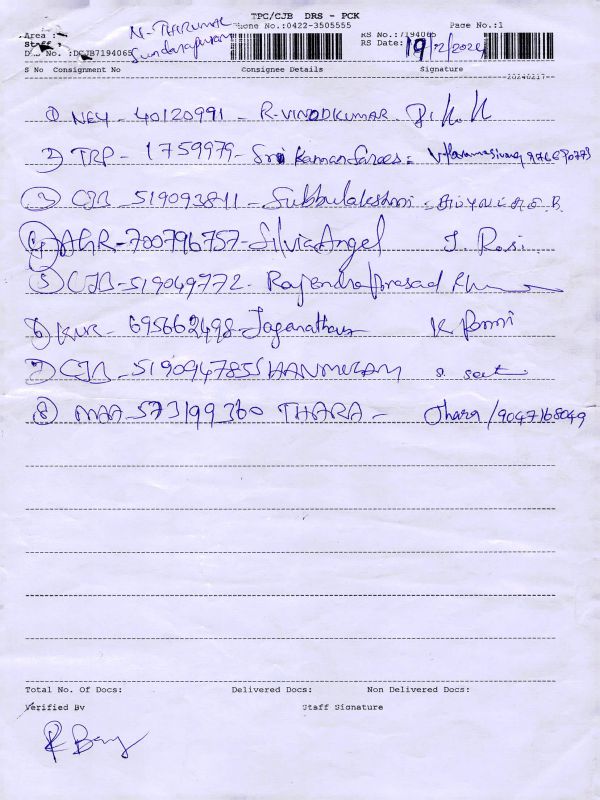 TPC/CJB DRS - PCK
N. THIRUMAL
Phone No.:0422-3505555
Page No.:1
Area :
Sundarapuram
RS No.:7194065
RS Date: 19/2/2024
No. :DCJB7194065
S No Consignment No Consignee Details Signature
20240217
1 NEY - 40120991 - R-VINODKUMAR
2) TRP - 1759979 - Sri Kaman Sarees:
3 CJB - 519093841 - Subbulakshmi -
4) AGR - 700796757 - Silvia Angel J. Rosi
5 CJB - 519049772 - Rajendra prasad
6 KUR - 695662498 - Jaganathan K
7 CJB - 519094785 SHANMUGAM S.
8 MAA - 573199360 THARA - Thara / 9047168049
Total No. Of Docs: Delivered Docs: Non Delivered Docs:
Verified By Staff Signature